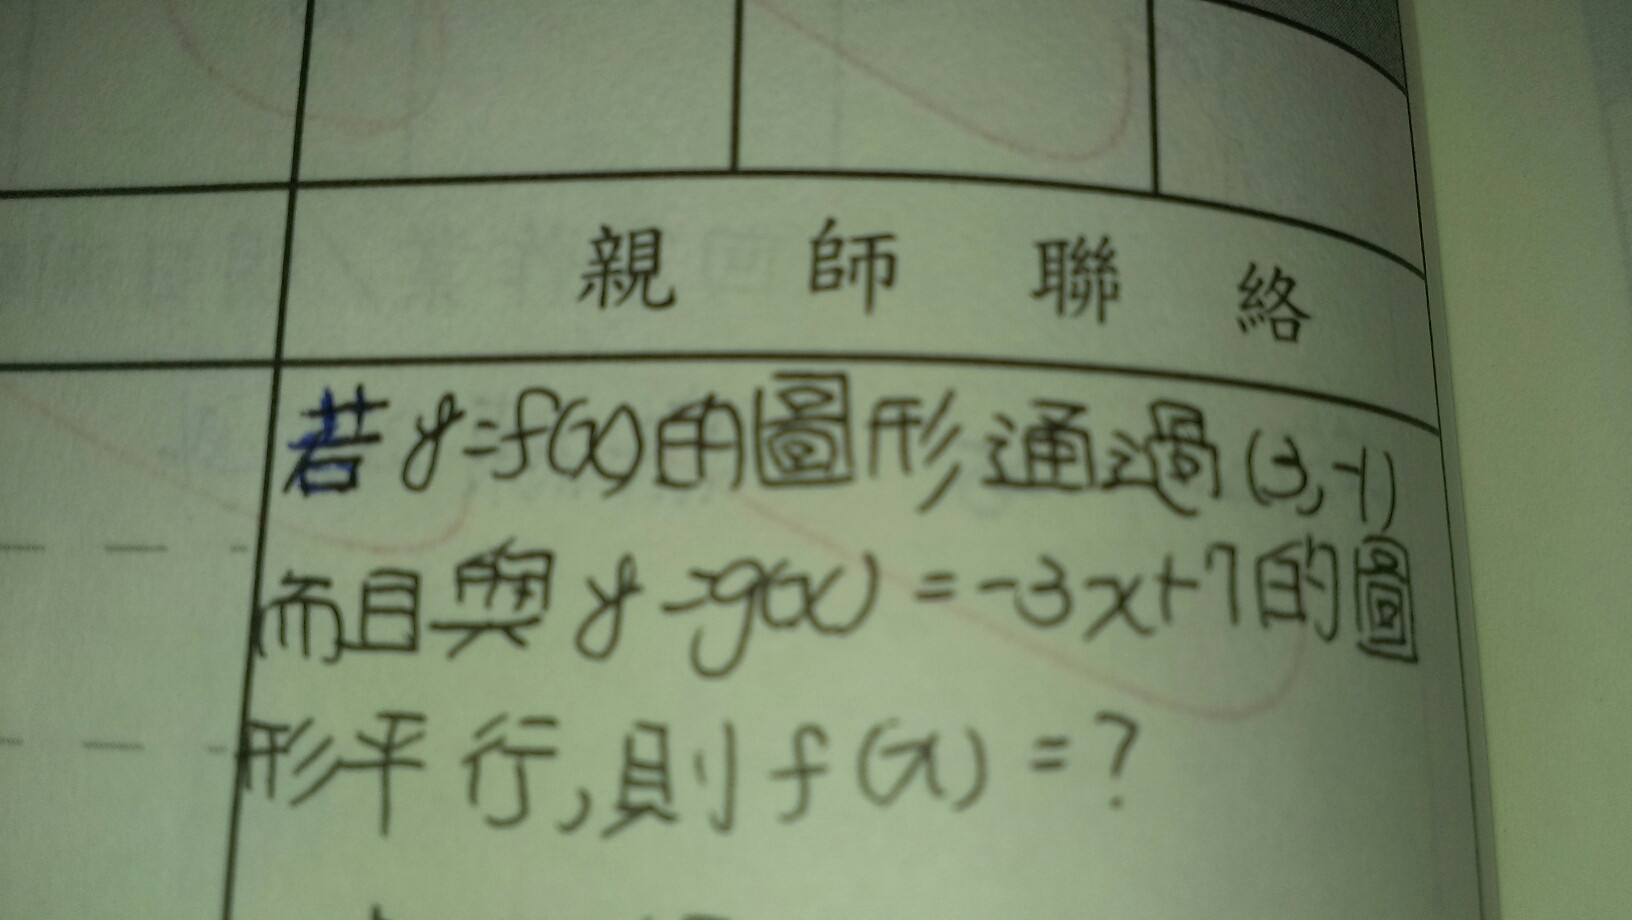 親師聯絡
若y=f(x)的圖形通過(3,-1)
而且與y=g(x)=-3x+7的圖
形平行,則f(x)=?